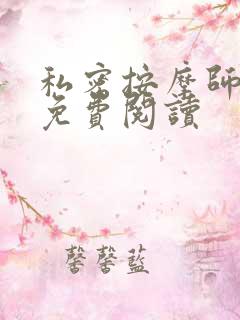 私密按摩師
免費閱讀
馨馨藍